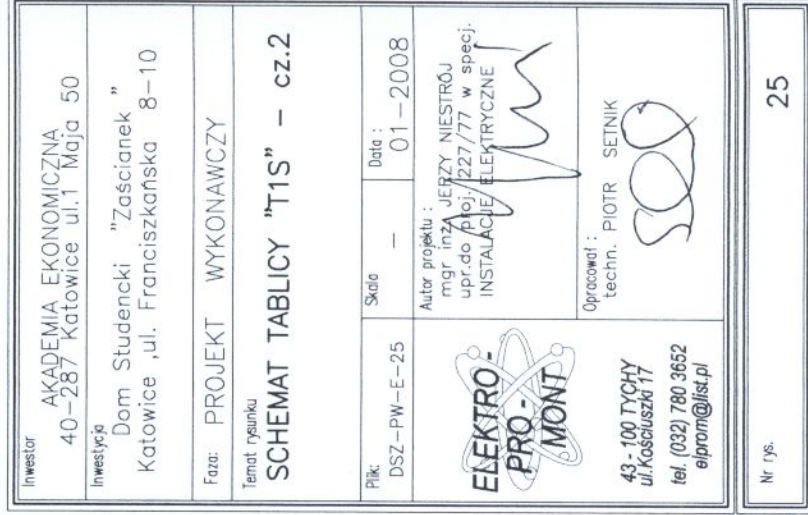 Inwestor
AKADEMIA EKONOMICZNA
40-287 Katowice ul.1 Maja 50
Inwestycja
Dom Studencki "Zaścianek"
Katowice ,ul. Franciszkańska 8-10
Faza: PROJEKT WYKONAWCZY
Temat rysunku
SCHEMAT TABLICY "T1S" - cz.2
Plik:
DSZ-PW-E-25
Skala
-
Data :
01-2008
ELEKTRO-
PRO-
MONT
43 - 100 TYCHY
ul.Kościuszki 17
tel. (032) 780 3652
elprom@list.pl
Autor projektu :
mgr inż. JERZY NIESTRÓJ
upr.do proj. 227/77 w specj.
INSTALACJE ELEKTRYCZNE
Opracował :
techn. PIOTR SETNIK
Nr rys.
25